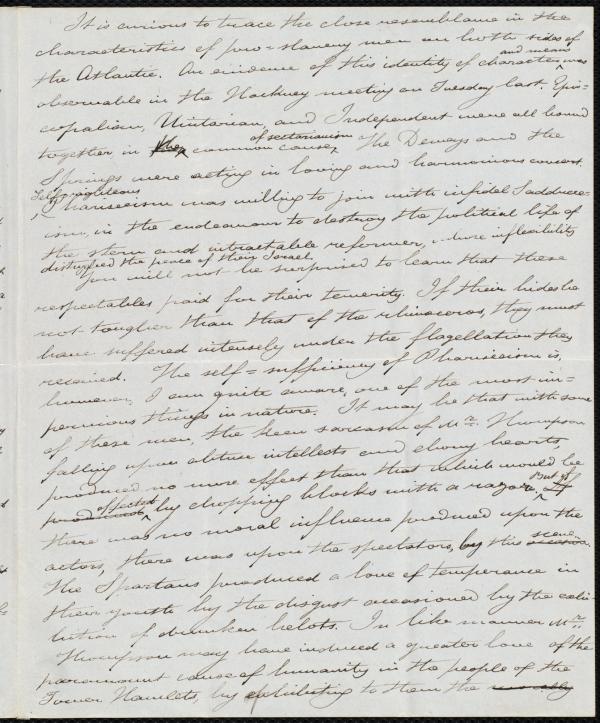 It is curious to trace the close resemblance in the
characteristics of pro-slavery men on both sides of
the Atlantic. An evidence of this identity of character and means was
observable in the Hackney meeting on Tuesday last. Epis=
copalism, Unitarian, and Independent were all bound
together in common cause of sectarianism. The Deweys and the
Springs were acting in loving and harmonious concert.
Self-righteous Phariseeism was willing to join with infidel Sadducee-
ism, in the endeavour to destroy the political life of
the stern and intractable reformer, whose inflexibility
disturbed the peace of their Israel.
You will not be surprised to learn that these
respectables paid for their temerity. If their hides be
not tougher than that of the rhinoceros, they must
have suffered intensely under the flagellation they
received. The self=sufficiency of Phariseeism is,
however, I am quite aware, one of the most im=
pervious things in nature. It may be that with some
of these men, the keen sarcasm of Mr. Thompson
falling upon obtuse intellects and ebony hearts,
produced no more effect than that which would be
produced effected by chopping blocks with a razor. But if If
there was no moral influence produced upon the
actors, there was upon the spectators, by this scene.
The Spartans produced a love of temperance in
their youth by the disgust occasioned by the exhi=
bition of drunken helots. In like manner Mr.
Thompson may have induced a greater love of the
paramount cause of humanity in the people of the
Tower Hamlets, by exhibiting to them the